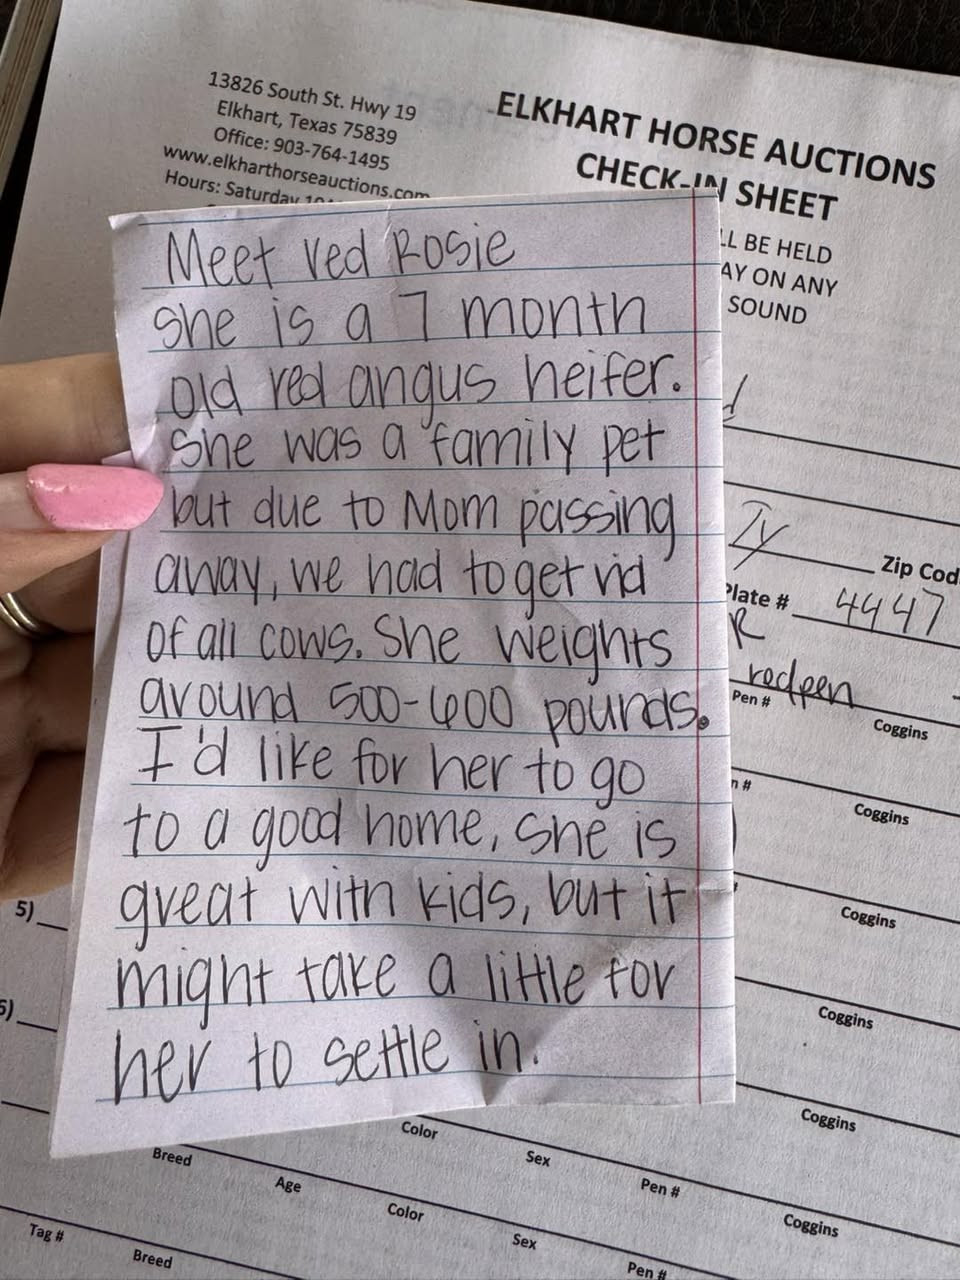 13826 South St. Hwy 19
Elkhart, Texas 75839
Office: 903-764-1495
www.elkharthorseauctions.com
Hours: Saturday
ELKHART HORSE AUCTIONS
CHECK-IN SHEET
LL BE HELD
AY ON ANY
SOUND
Meet red Rosie
she is a 7 month
old red angus heifer.
She was a family pet
but due to Mom passing
away, we had to get rid
of all cows. She weights
around 500-600 pounds.
I'd like for her to go
to a good home, she is
great with kids, but it
might take a little for
her to settle in.
Zip Cod
Plate # 4447
R
redpen
Pen # Coggins
n # Coggins
5) Coggins
Coggins
Coggins
Color Sex Pen # Coggins
Breed Age Color Sex Pen #
Tag # Breed